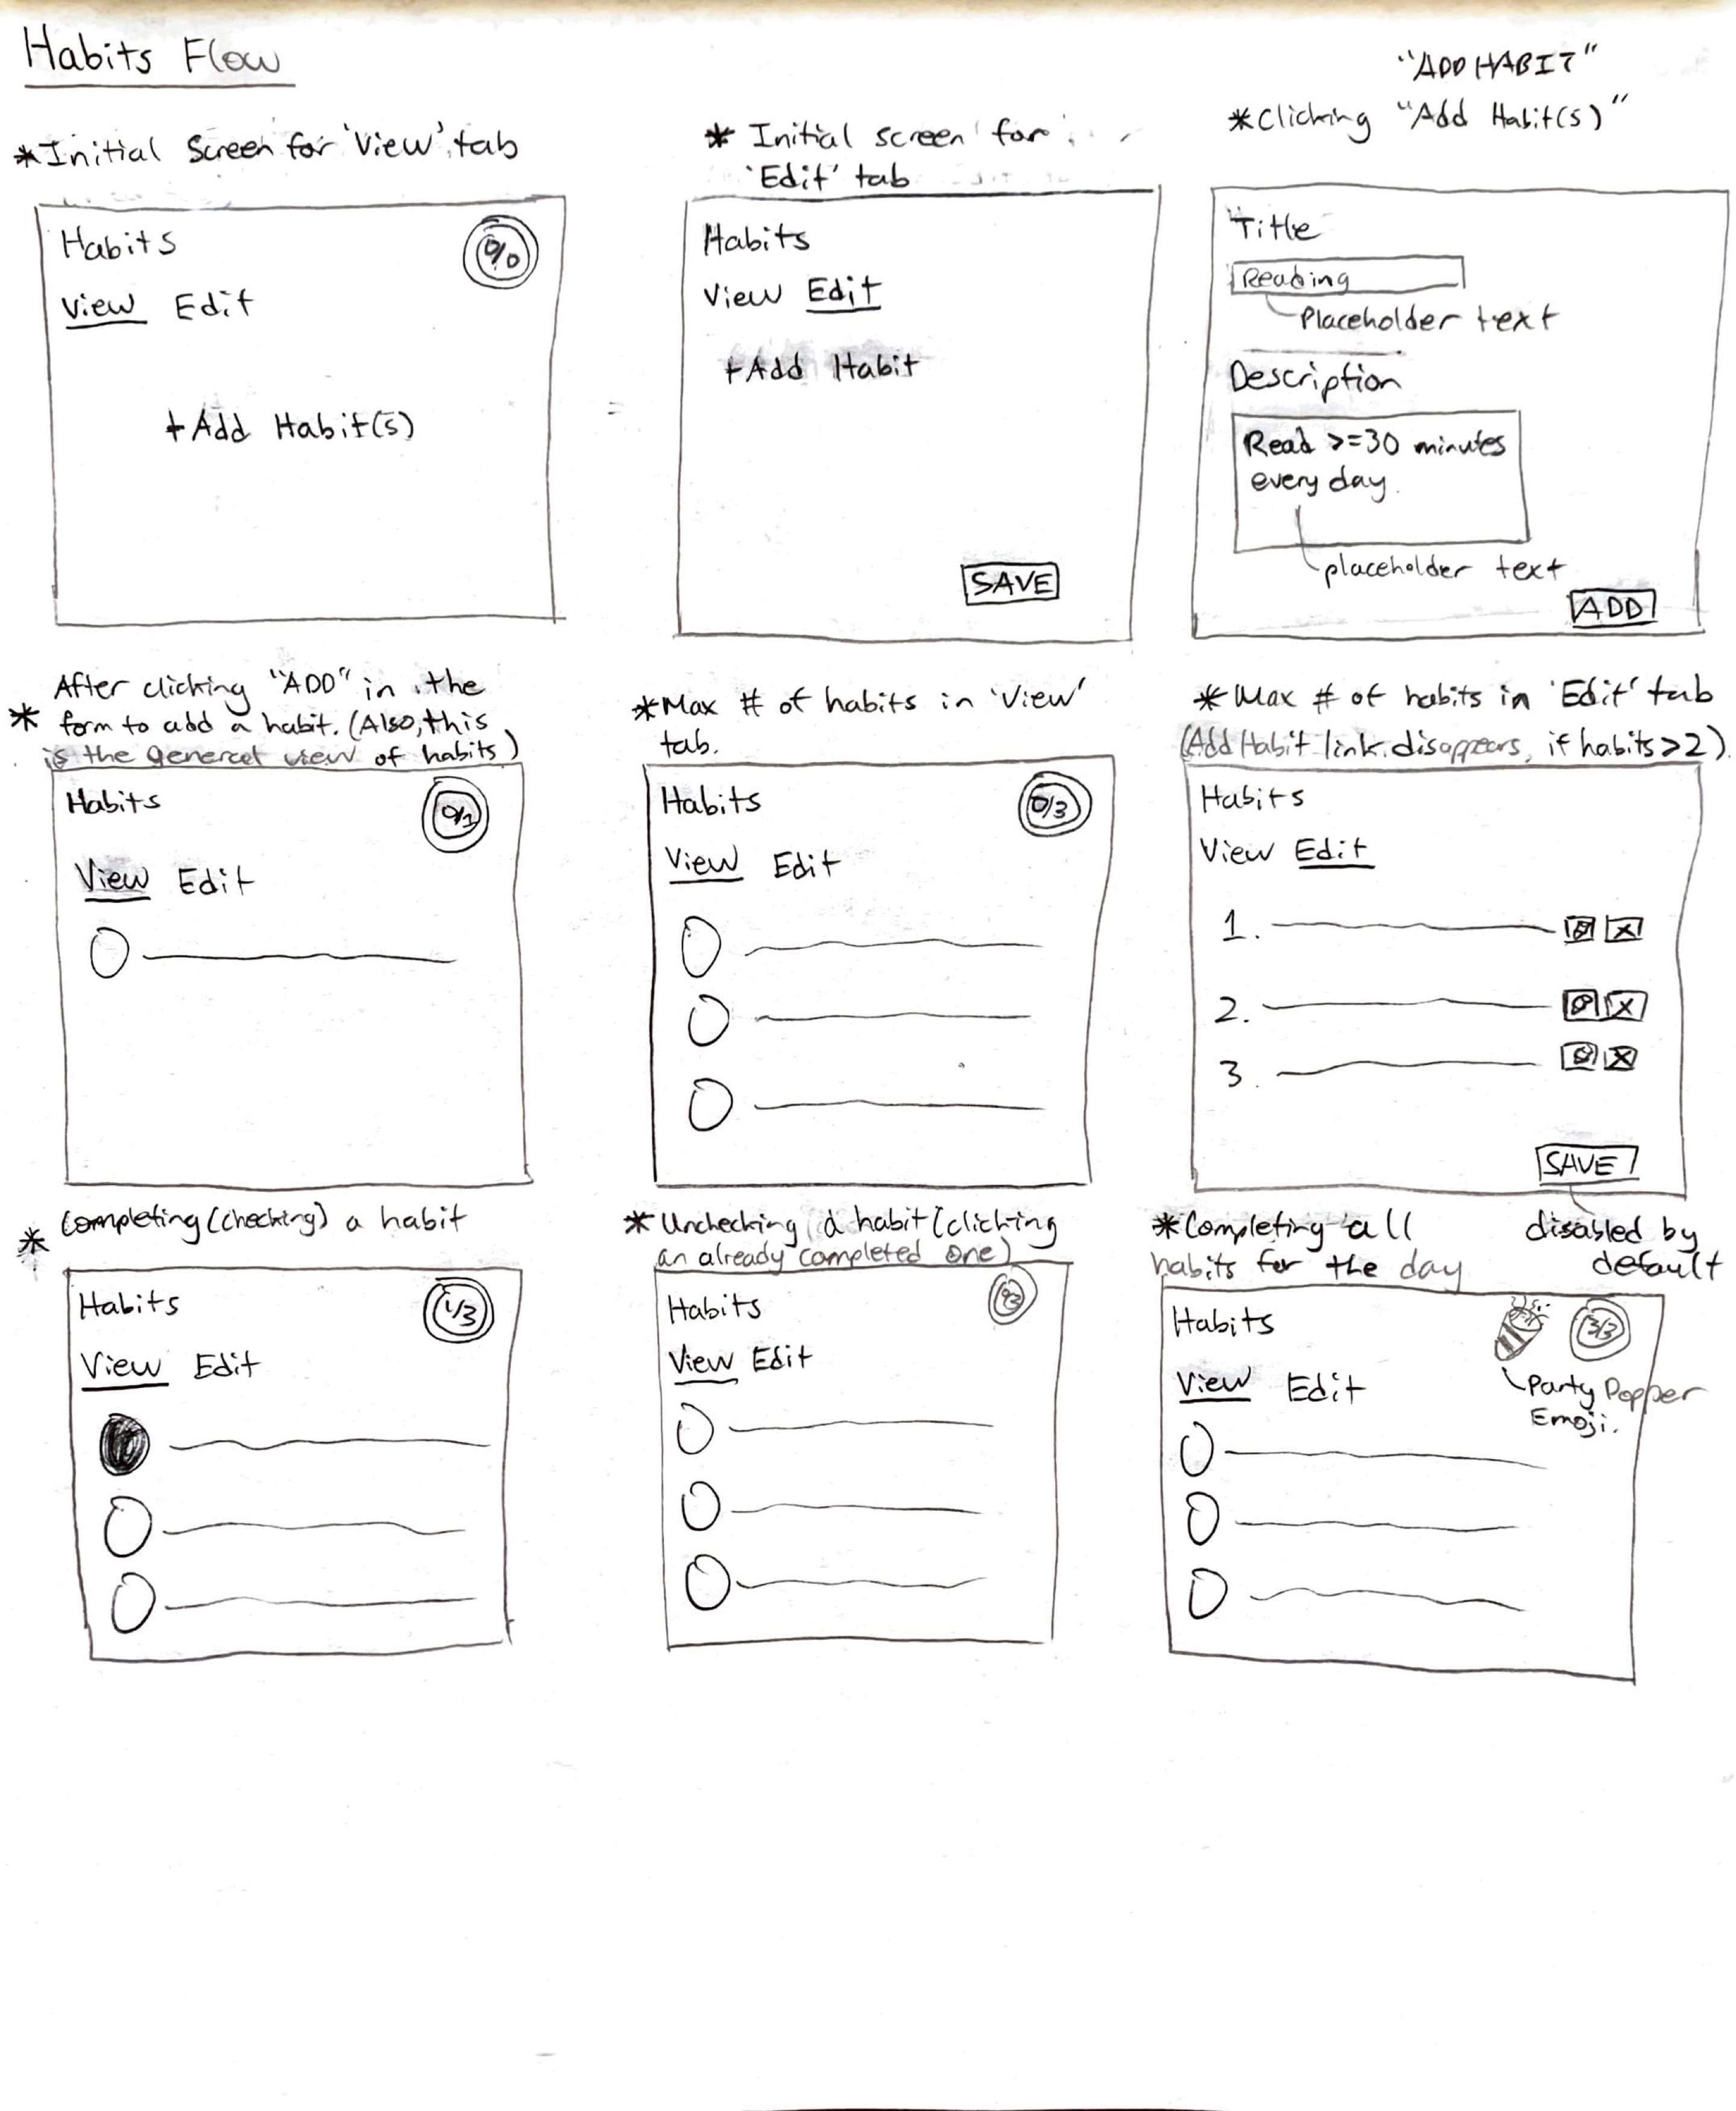 Habits Flow
*Initial Screen for 'View' tab
Habits
0/0
View Edit
+Add Habit(s)
* Initial screen for
'Edit' tab
Habits
View Edit
+Add Habit
SAVE
"ADD HABIT"
*Clicking "Add Habit(s)"
Title
Reading
Placeholder text
Description
Read >=30 minutes
every day.
placeholder text
ADD
* After clicking "ADD" in the
form to add a habit. (Also, this
is the general view of habits)
Habits
0/1
View Edit
*Max # of habits in 'View'
tab.
Habits
0/3
View Edit
*Max # of habits in 'Edit' tab
(Add Habit link disappears, if habits>2).
Habits
View Edit
1.
2.
3.
SAVE
disabled by
default
* Completing (checking) a habit
Habits
1/3
View Edit
*Unchecking a habit (clicking
an already completed one)
Habits
0/3
View Edit
*Completing all
habits for the day
Habits
3/3
View Edit
Party Popper
Emoji.